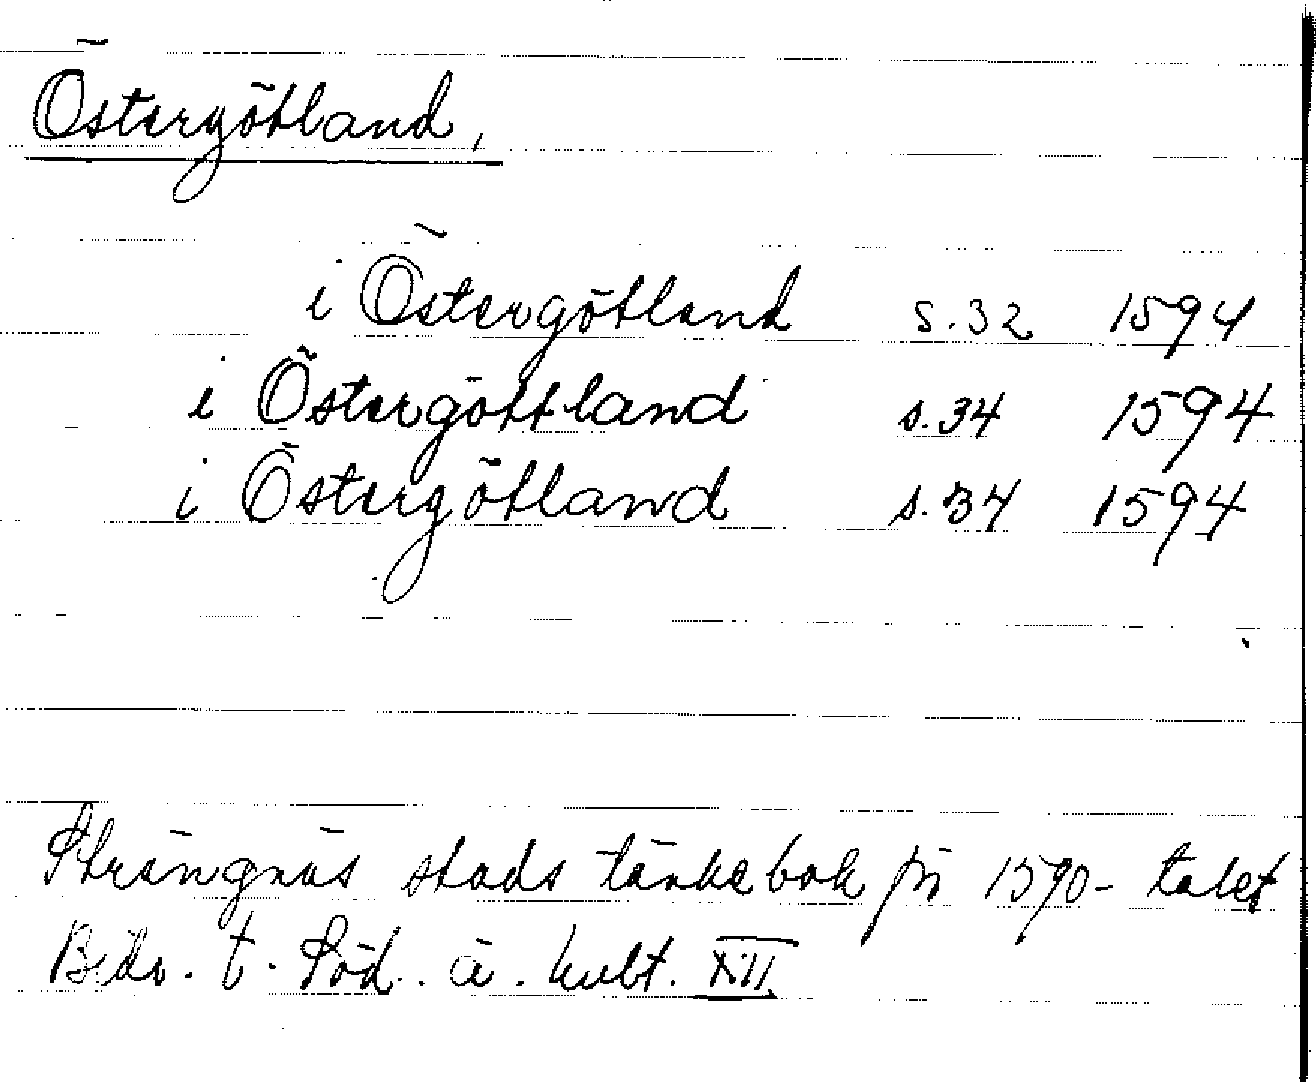 Östergötland,
i Östergötland s.32 1594
i Östergöttland s.34 1594
i Östergötland s.34 1594
Strängnäs stads tänkebok fr 1590-talet
Bidr. t. Söd. ä. kult. XIII